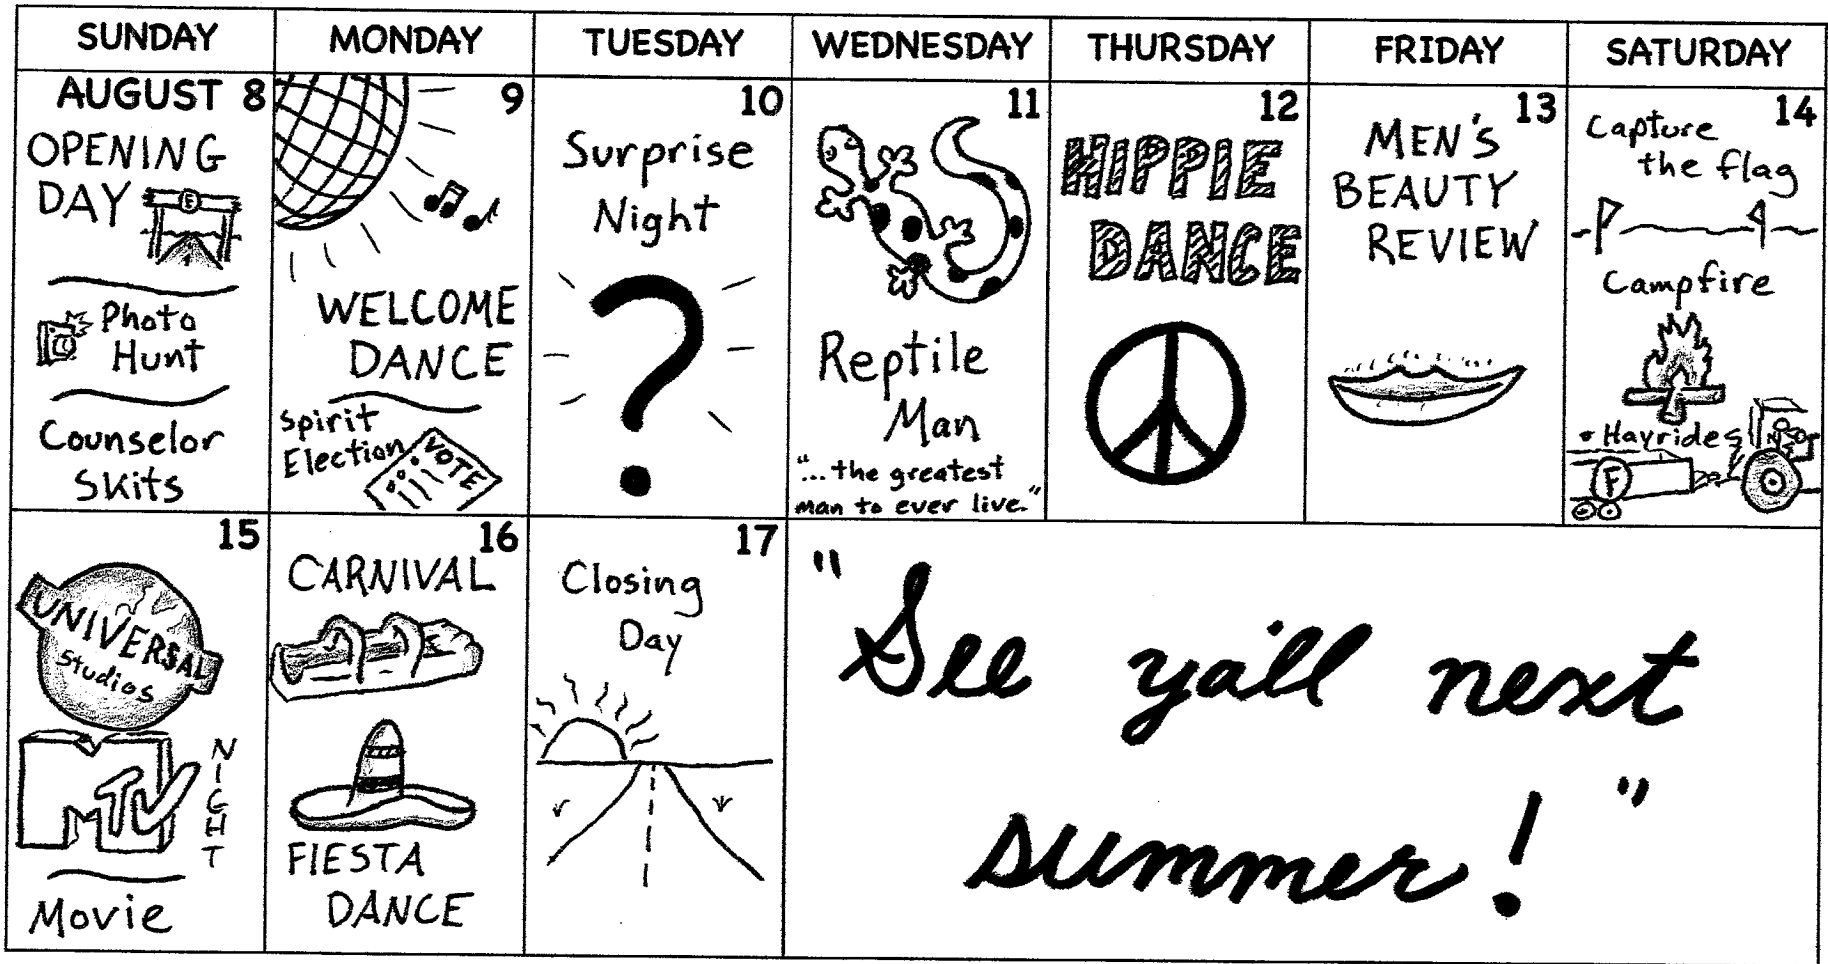 SUNDAY
MONDAY
TUESDAY
WEDNESDAY
THURSDAY
FRIDAY
SATURDAY
AUGUST 8
OPENING
DAY
F
Photo
Hunt
Counselor
Skits
9
WELCOME
DANCE
Spirit
Election
VOTE
10
Surprise
Night
?
11
Reptile
Man
"...the greatest
man to ever live."
12
HIPPIE
DANCE
13
MEN'S
BEAUTY
REVIEW
14
Capture
the flag
Campfire
• Hayrides
F
15
UNIVERSAL
Studios
MTV
NIGHT
Movie
16
CARNIVAL
FIESTA
DANCE
17
Closing
Day
"See ya'll next
summer!"